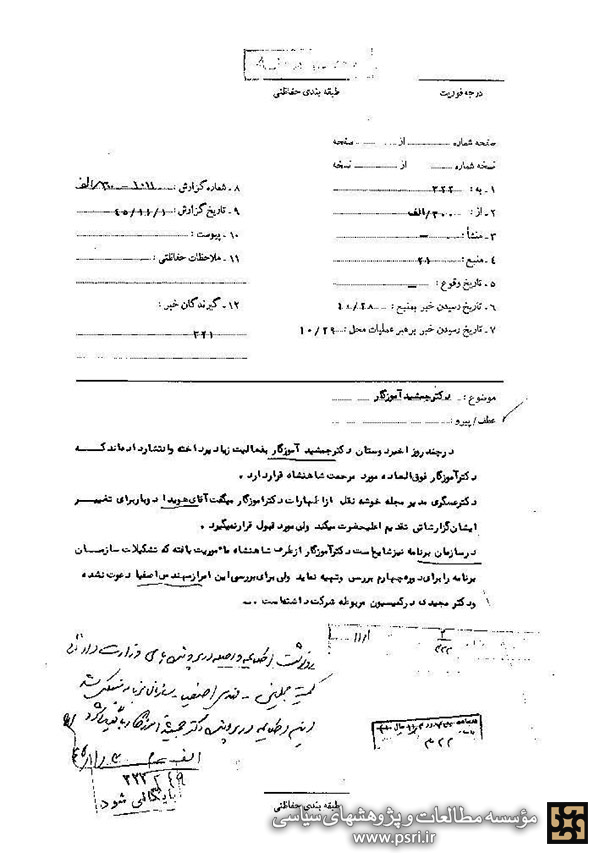 درجه فوریت
طبقه بندی حفاظتی
صفحه شماره : از صفحه
نسخه شماره : از نسخه
۱ ـ به : ۳۲۲
۲ ـ از : ۳۰۰/الف
۳ ـ منشأ : ـ
۴ ـ منبع : ۲۱
۵ ـ تاریخ وقوع : ـ
۶ ـ تاریخ رسیدن خبر بمنبع : ۱۰/۲۸
۷ ـ تاریخ رسیدن خبر برهبر عملیات محل : ۱۰/۲۹
۸ ـ شماره گزارش :
۹ ـ تاریخ گزارش : ۴۵/۱۱/۱
۱۰ ـ پیوست :
۱۱ ـ ملاحظات حفاظتی :
۱۲ ـ گیرندگان خبر :
۳۲۱
موضوع : دکتر جمشید آموزگار
عطف/پیرو :
در چند روز اخیر دوستان دکتر جمشید آموزگار بفعالیت زیاد پرداخته و انتشار داده‌اند که
دکتر آموزگار فوق‌العاده مورد مرحمت شاهنشاه قرار دارد .
دکتر عسگری مدیر مجله خوشه نقل از اظهارات دکتر آموزگار میگفت آقای هویدا دوبار برای تغییر
ایشان گزارشاتی تقدیم اعلیحضرت میکند ولی مورد قبول قرار نمیگیرد .
در سازمان برنامه نیز شایع است دکتر آموزگار از طرف شاهنشاه مأموریت یافته که تشکیلات سازمان
برنامه را برای دوره چهارم بررسی و تهیه نماید ولی برای بررسی این امر از مهندس اصفیا دعوت نشده
و دکتر مجیدی در کمیسیون مربوطه شرکت داشته است .
بایگانی شود
۳۲۲
طبقه بندی حفاظتی
مؤسسه مطالعات و پژوهشهای سیاسی
www.psri.ir